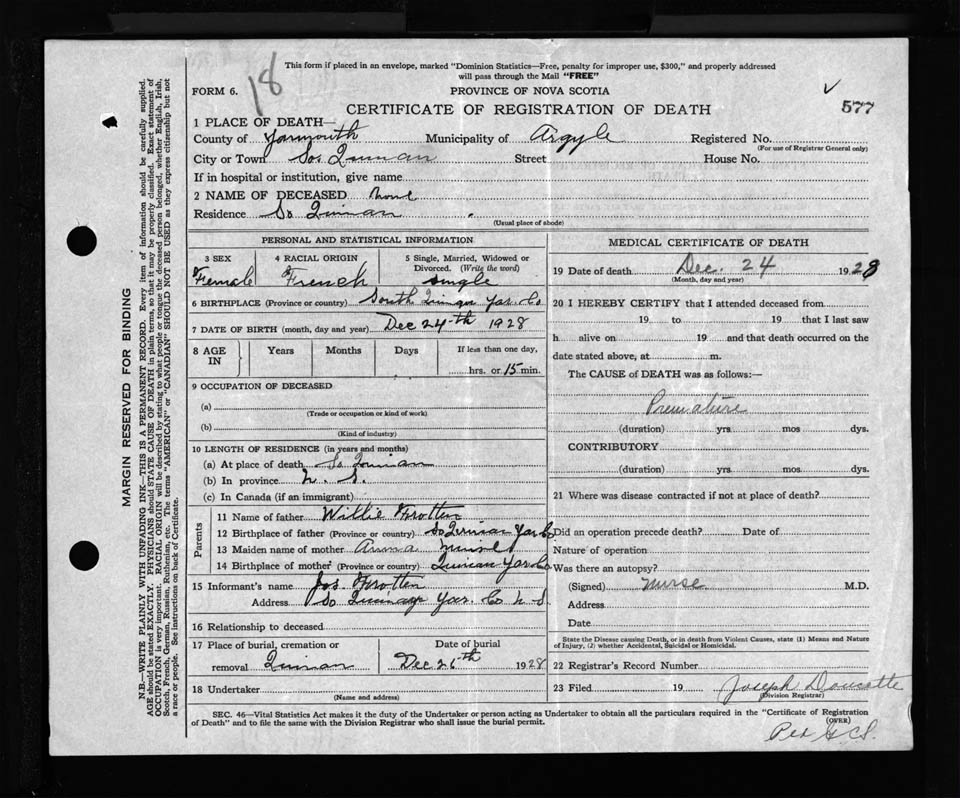 18
This form if placed in an envelope, marked "Dominion Statistics—Free, penalty for improper use, $300," and properly addressed
will pass through the Mail "FREE"
FORM 6. PROVINCE OF NOVA SCOTIA
577
CERTIFICATE OF REGISTRATION OF DEATH
1 PLACE OF DEATH—
County of Yarmouth Municipality of Argyle Registered No.
(For use of Registrar General only)
City or Town So. Quinan Street House No.
If in hospital or institution, give name
2 NAME OF DECEASED None
Residence So Quinan
(Usual place of abode)
PERSONAL AND STATISTICAL INFORMATION
3 SEX 4 RACIAL ORIGIN 5 Single, Married, Widowed or
Divorced. (Write the word)
Female French Single
6 BIRTHPLACE (Province or country) South Quinan Yar. Co
7 DATE OF BIRTH (month, day and year) Dec 24th 1928
8 AGE IN Years Months Days If less than one day,
hrs. or 15 min.
9 OCCUPATION OF DECEASED
(a)
(Trade or occupation or kind of work)
(b)
(Kind of industry)
10 LENGTH OF RESIDENCE (in years and months)
(a) At place of death So Quinan
(b) In province N. S.
(c) In Canada (if an immigrant)
Parents
11 Name of father Willie Frotten
12 Birthplace of father (Province or country) So Quinan Yar Co
13 Maiden name of mother Anna
14 Birthplace of mother (Province or country) Quinan Yar Co
15 Informant's name Jos. Frotten
Address So Quinan Yar. Co N S
16 Relationship to deceased
17 Place of burial, cremation or Date of burial
removal Quinan Dec 26th 1928
18 Undertaker
(Name and address)
MEDICAL CERTIFICATE OF DEATH
19 Date of death Dec. 24 1928
(Month, day and year)
20 I HEREBY CERTIFY that I attended deceased from
19 to 19 that I last saw
h alive on 19 and that death occurred on the
date stated above, at m.
The CAUSE of DEATH was as follows:—
Premature
(duration) yrs. mos dys.
CONTRIBUTORY
(duration) yrs. mos dys.
21 Where was disease contracted if not at place of death?
Did an operation precede death? Date of
Nature of operation
Was there an autopsy?
(Signed) Nurse M.D.
Address
Date
State the Disease causing Death, or in death from Violent Causes, state (1) Means and Nature
of Injury, (2) whether Accidental, Suicidal or Homicidal.
22 Registrar's Record Number
23 Filed 19 Joseph Doucette
(Division Registrar)
SEC. 46—Vital Statistics Act makes it the duty of the Undertaker or person acting as Undertaker to obtain all the particulars required in the "Certificate of Registration
of Death" and to file the same with the Division Registrar who shall issue the burial permit. (OVER)
Per
MARGIN RESERVED FOR BINDING
N.B.—WRITE PLAINLY WITH UNFADING INK—THIS IS A PERMANENT RECORD. Every item of information should be carefully supplied.
AGE should be stated EXACTLY. PHYSICIANS should STATE CAUSE OF DEATH in plain terms, so that it may be properly classified. Exact statement of
OCCUPATION is very important. RACIAL ORIGIN will be described by stating to what people or tongue the deceased person belonged, whether English, Irish,
Scotch, French, German, Russian, Ruthenian, etc. The terms "AMERICAN" or "CANADIAN" SHOULD NOT BE USED as they express citizenship but not
a race or people. See instructions on back of Certificate.